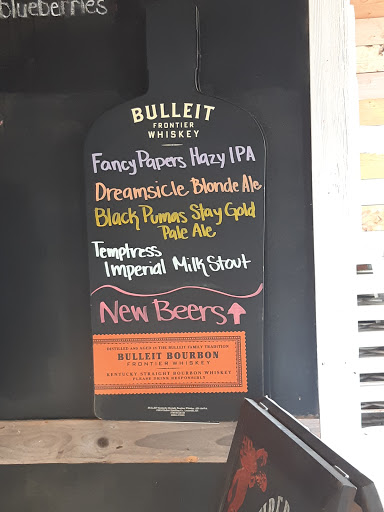 blueberries
BULLEIT
FRONTIER
WHISKEY
Fancy Papers Hazy IPA
Dreamsicle Blonde Ale
Black Pumas Stay Gold
Pale Ale
Temptress
Imperial Milk Stout
New Beers
DISTILLED AND AGED IN THE BULLEIT FAMILY TRADITION
BULLEIT BOURBON
FRONTIER WHISKEY
KENTUCKY STRAIGHT BOURBON WHISKEY
PLEASE DRINK RESPONSIBLY